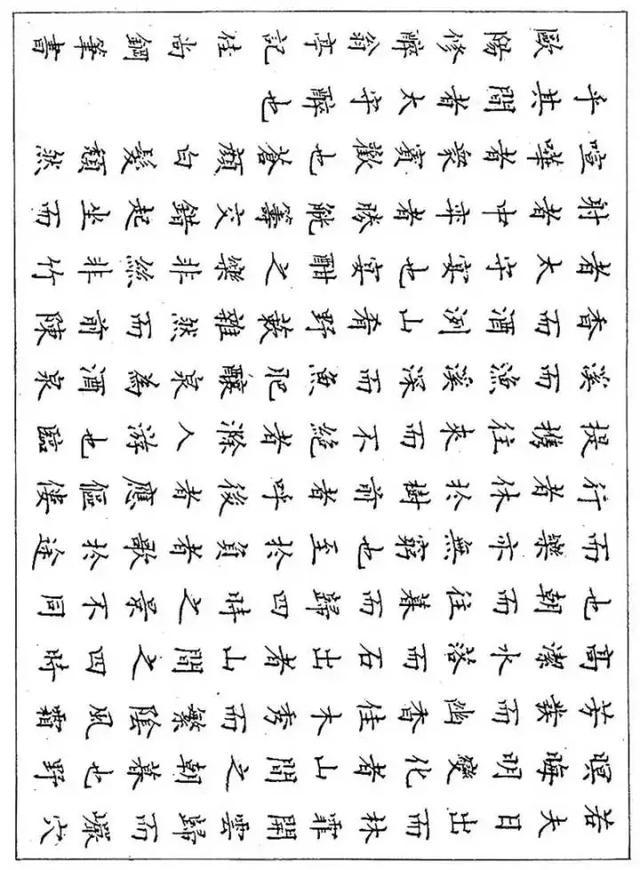 若夫日出而林霏開雲歸而巖穴
暝晦明變化者山間之朝暮也野
芳發而幽香佳木秀而繁陰風霜
高潔水落而石出者山間之四時
也朝而往暮而歸四時之景不同
而樂亦無窮也至於負者歌於途
行者休於樹前者呼後者應傴僂
提携往來而不絶者滁人游也臨
溪而漁溪深而魚肥釀泉為酒泉
香而酒洌山肴野蔌雜然而前陳
者太守宴也宴酣之樂非絲非竹
射者中弈者勝觥籌交錯起坐而
喧嘩者衆賓歡也蒼顏白髮頹然
乎其間者太守醉也
歐陽修醉翁亭記佳尚鋼筆書